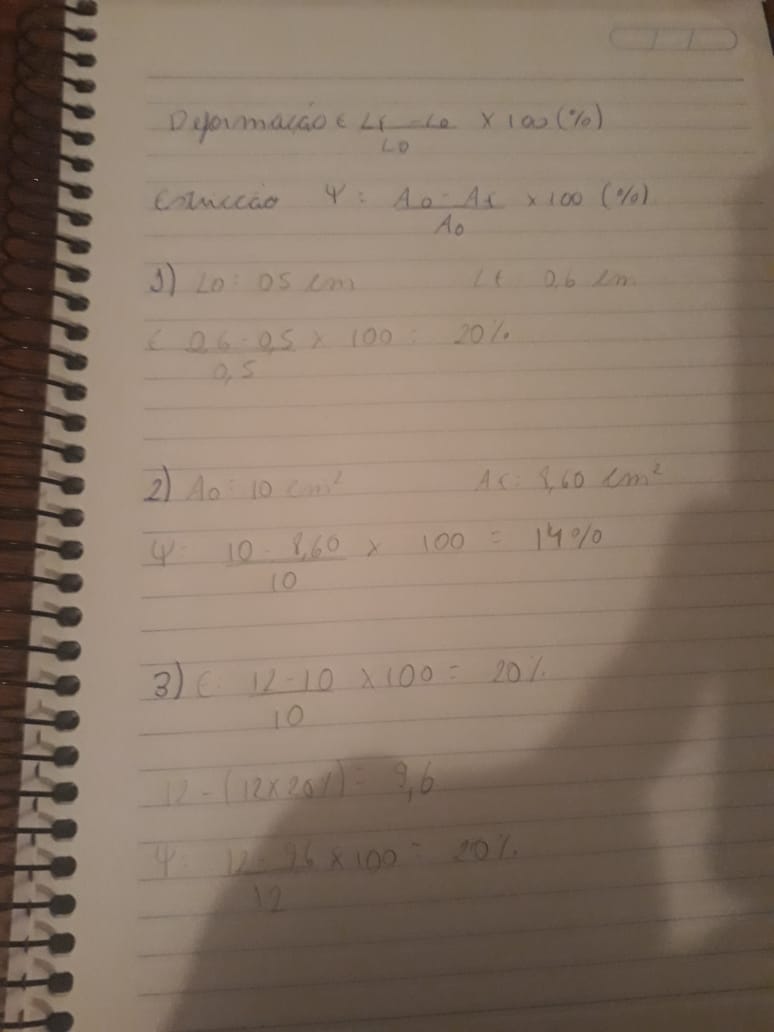 Deformação ε Lf - Lo / Lo × 100 (%)
Estricção Ψ: Ao - Af / Ao × 100 (%)
1) Lo: 05 cm Lf: 0,6 cm
ε 0,6 - 0,5 / 0,5 × 100 = 20%
2) Ao: 10 cm² Af: 8,60 cm²
Ψ: 10 - 8,60 / 10 × 100 = 14%
3) ε: 12 - 10 / 10 × 100 = 20%
12 - (12 × 20%) = 9,6
Ψ: 12 - 9,6 / 12 × 100 = 20%